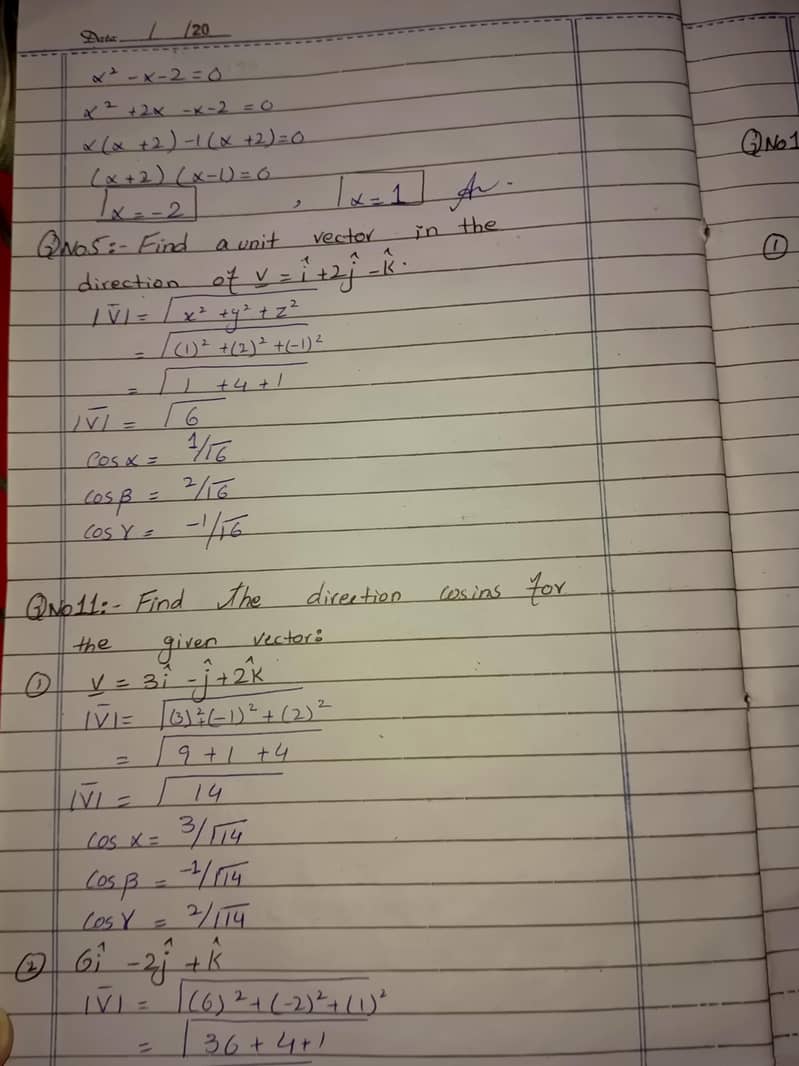 Date / /20
x² -x-2=0
x² +2x -x-2 =0
x(x +2)-1(x +2)=0
(x+2) (x-1)=0
x=-2 , x=1
QNo5:- Find a unit vector in the
direction of v = î+2ĵ-k̂.
|V̄|= √x² +y² +z²
= √(1)² +(2)² +(-1)²
= √1 +4 +1
|V̄| = √6
Cos α = 1/√6
Cos β = 2/√6
Cos γ = -1/√6
QNo11:- Find the direction cosins for
the given vector:
① v = 3î -ĵ+2k̂
|V̄|= √(3)²+(-1)²+(2)²
= √9 +1 +4
|V̄| = √14
Cos α = 3/√14
Cos β = -1/√14
Cos γ = 2/√14
② 6î -2ĵ +k̂
|V̄| = √(6)²+(-2)²+(1)²
= √36 +4+1
QNo1
①